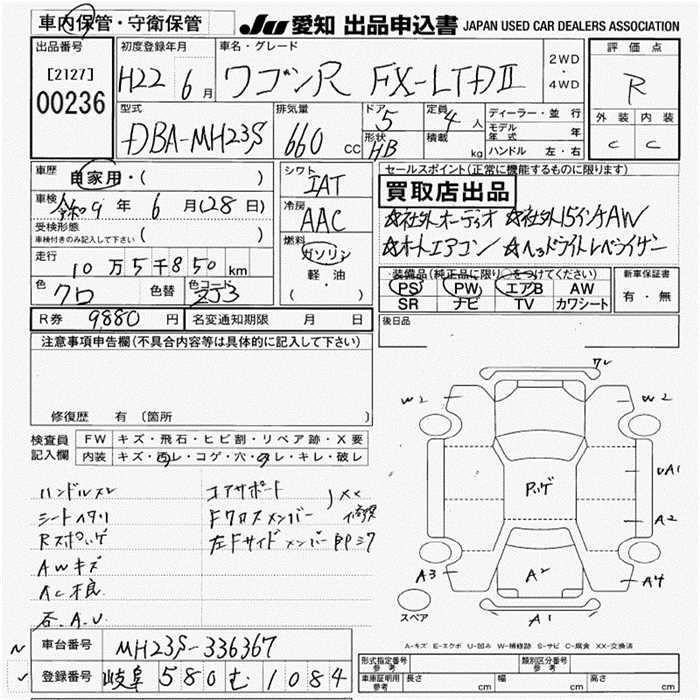 車内保管・守衛保管
JU 愛知 出品申込書 JAPAN USED CAR DEALERS ASSOCIATION
出品番号
[2127]
00236
初度登録年月
H22 6月
車名・グレード
ワゴンR FX-LTDII
2WD
・
4WD
評価点
R
型式
DBA-MH23S
排気量
660 CC
ドア 5
形状 HB
定員 4人
積載 kg
ディーラー・並行
モデル年式 年
ハンドル 左・右
外装 内装
C C
車歴 自家用・( )
車検 令和9年 6月(28日)
受検形態
車検付きのみ記入して下さい ( )
走行
10万5千850km
色 クロ
色替
色コード ZJ3
シフト
IAT
冷房
AAC
燃料
ガソリン
軽油
( ・ )
セールスポイント(正常に機能するものに限ります)
買取店出品
☆社外オーディオ ☆社外15インチAW
☆オートエアコン ☆ヘッドライトレベライザー
装備品(純正品に限り○をつけてください)
PS PW エアB AW
SR ナビ TV カワシート
新車保証書
有・無
R券 9880円
名変通知期限 月 日
後日品
注意事項申告欄(不具合内容等は具体的に記入して下さい)
修復歴 有(箇所 )
検査員記入欄
FW キズ・飛石・ヒビ割・リペア跡・X要
内装 キズ・汚レ・コゲ・穴・スレ・キレ・破レ
ハンドルスレ
シート
AWキズ
コアサポート
XX
Fクロスメンバー
修復
左Fサイドメンバー
W2 W2
UA1
A2
A3 A2 A4
A1
スペア
A-キズ E-エクボ U-凹み W-補修跡 S-サビ C-腐食 XX-交換済
車台番号 MH23S-336367
登録番号 岐阜 580 む 1084
形式指定番号 参考
類別区分番号 参考
車庫証明用 参考 長さ cm 幅 cm 高さ cm